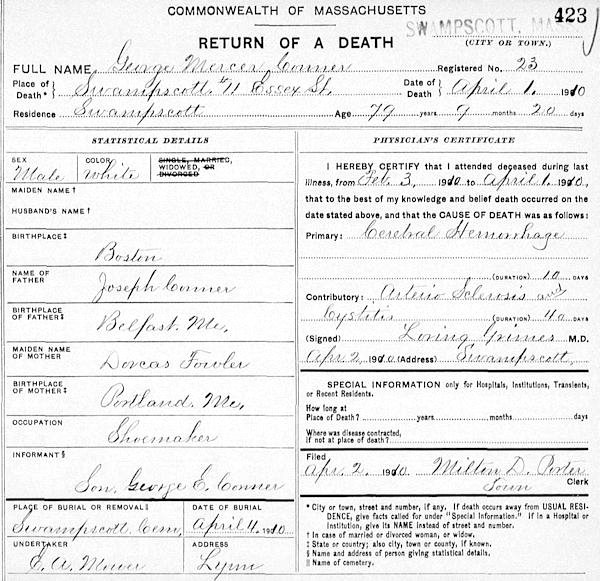 COMMONWEALTH OF MASSACHUSETTS
SWAMPSCOTT, MASS 423
RETURN OF A DEATH (CITY OR TOWN.)
FULL NAME George Mercer Conner Registered No. 23
Place of Death* } Swampscott #11 Essex St. Date of Death } April 1. 1910
Residence Swampscott Age 79 years 9 months 20 days
STATISTICAL DETAILS
SEX Male COLOR White SINGLE, MARRIED, WIDOWED, OR DIVORCED
MAIDEN NAME †
HUSBAND'S NAME †
BIRTHPLACE ‡
Boston
NAME OF FATHER Joseph Conner
BIRTHPLACE OF FATHER ‡ Belfast. Me.
MAIDEN NAME OF MOTHER Dorcas Fowler
BIRTHPLACE OF MOTHER ‡ Portland. Me.
OCCUPATION
Shoemaker
INFORMANT §
Son. George E. Conner
PLACE OF BURIAL OR REMOVAL || DATE OF BURIAL
Swampscott Cem. April 4. 1910
UNDERTAKER ADDRESS
Lynn
PHYSICIAN'S CERTIFICATE
I HEREBY CERTIFY that I attended deceased during last
illness, from Feb. 3, 1910 to April 1. 1910,
that to the best of my knowledge and belief death occurred on the
date stated above, and that the CAUSE OF DEATH was as follows:
Primary: Cerebral Hemorrhage
(DURATION) 10 DAYS
Contributory: Arterio Sclerosis and
Cystitis (DURATION) 40 DAYS
(Signed) Loring Grimes M.D.
Apr. 2, 1910 (Address) Swampscott.
SPECIAL INFORMATION only for Hospitals, Institutions, Transients,
or Recent Residents.
How long at
Place of Death? years months days
Where was disease contracted,
if not at place of death?
Filed
Apr. 2. 1910. Milton D. Porter
Town Clerk
* City or town, street and number, if any. If death occurs away from USUAL RESI-
DENCE, give facts called for under "Special Information." If in a Hospital or
Institution, give its NAME instead of street and number.
† In case of married or divorced woman, or widow.
‡ State or country; also city, town or county, if known.
§ Name and address of person giving statistical details.
|| Name of cemetery.